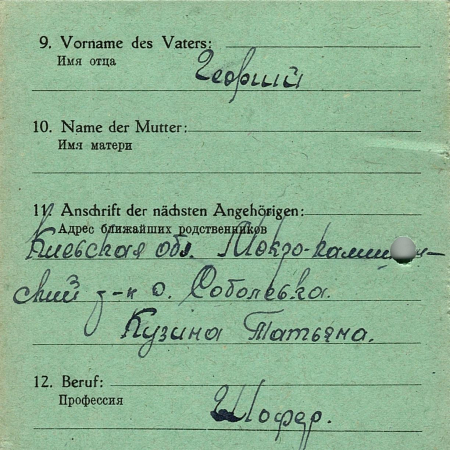 9. Vorname des Vaters:
Имя отца
Георгий
10. Name der Mutter:
Имя матери
11. Anschrift der nächsten Angehörigen:
Адрес ближайших родственников
Киевская обл.
р-н с. Соболевка.
Кузина Татьяна.
12. Beruf:
Профессия
Шофер.